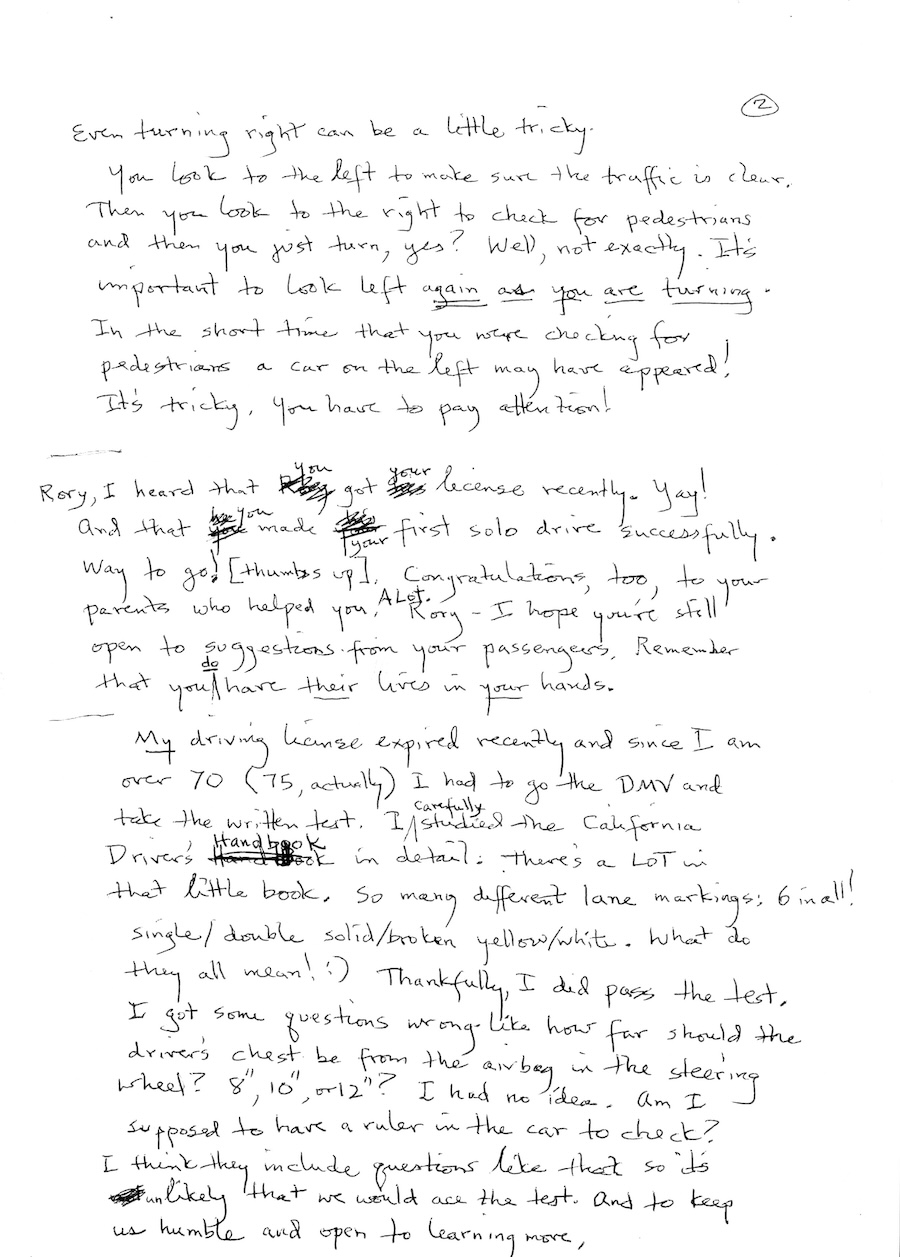 2
Even turning right can be a little tricky.
You look to the left to make sure the traffic is clear.
Then you look to the right to check for pedestrians
and then you just turn, yes? Well, not exactly. It's
important to look left again as you are turning.
In the short time that you were checking for
pedestrians a car on the left may have appeared!
It's tricky, you have to pay attention!
Rory, I heard that you got your license recently. Yay!
And that you made your first solo drive successfully.
Way to go! [thumbs up]. Congratulations, too, to your
parents who helped you, A Lot. Rory - I hope you're still
open to suggestions from your passengers. Remember
that you do have their lives in your hands.
My driving license expired recently and since I am
over 70 (75, actually) I had to go the DMV and
take the written test. I carefully studied the California
Driver's Handbook in detail: There's a LOT in
that little book. So many different lane markings; 6 in all!
single/double solid/broken yellow/white. What do
they all mean! :) Thankfully, I did pass the test.
I got some questions wrong - like how far should the
driver's chest be from the airbag in the steering
wheel? 8", 10", or 12"? I had no idea. Am I
supposed to have a ruler in the car to check?
I think they include questions like that so it's
unlikely that we would ace the test. And to keep
us humble and open to learning more,